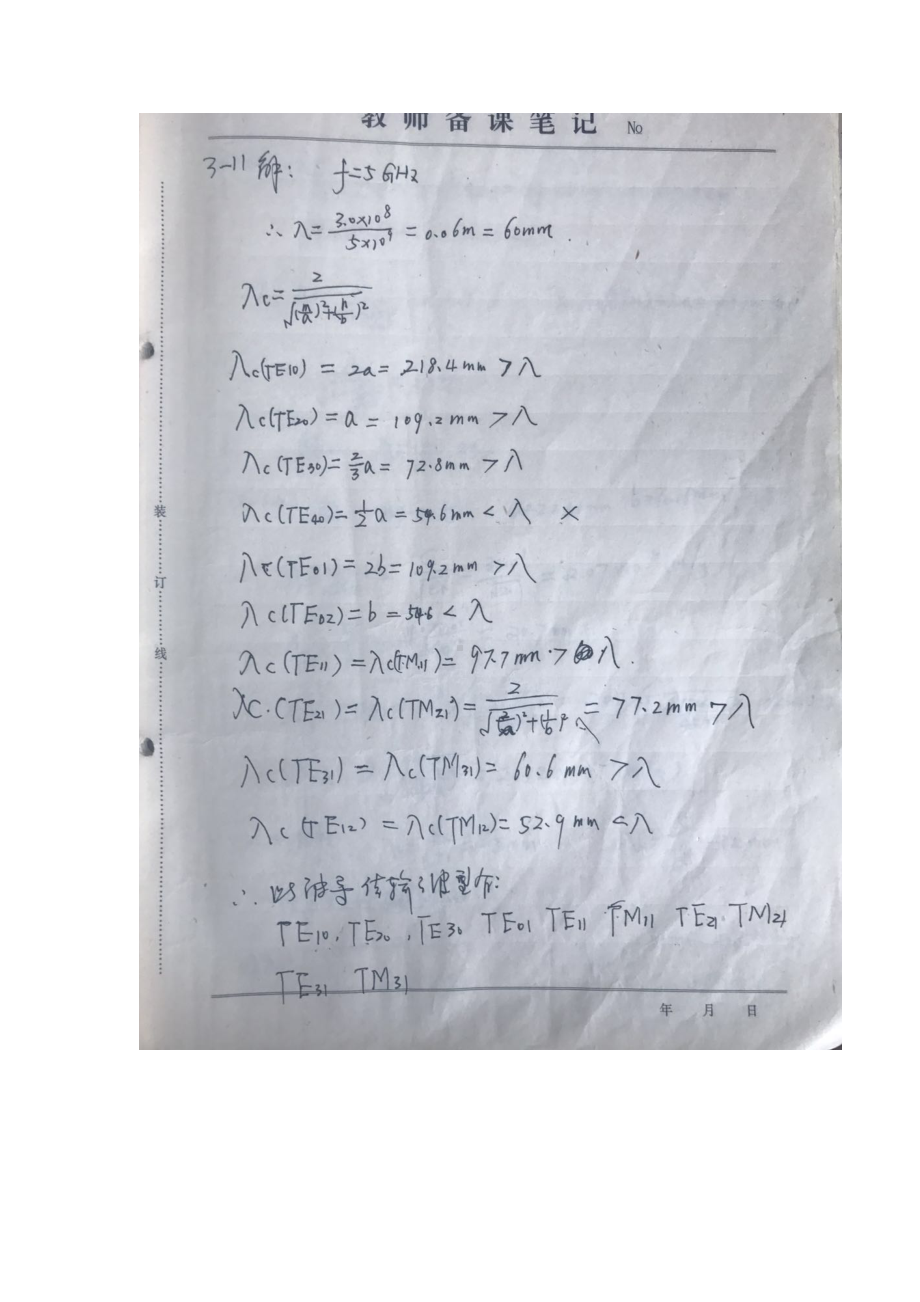 教师备课笔记 No
3-11 解: f=5GHz
∴ λ= 3.0×10^8 / 5×10^9 = 0.06m = 60mm.
λc= 2 / √((m/a)^2+(n/b)^2)
λc(TE10) = 2a= 218.4mm >λ
λc(TE20) = a = 109.2mm >λ
λc(TE30)= 2/3 a= 72.8mm >λ
λc(TE40)= 1/2 a = 54.6mm <λ ×
装
λc(TE01)= 2b= 109.2mm >λ
订
λc(TE02)= b = 54.6 < λ
线
λc(TE11) =λc(TM11)= 97.7mm >λ.
λc.(TE21)= λc(TM21)= 2 / √((2/a)^2+(1/b)^2) = 77.2mm >λ
λc(TE31) = λc(TM31)= 60.6mm >λ
λc(TE12) =λc(TM12)= 52.9mm <λ
∴ 波导传输波型有:
TE10, TE20, TE30 TE01 TE11 TM11 TE21 TM21
TE31 TM31
年 月 日